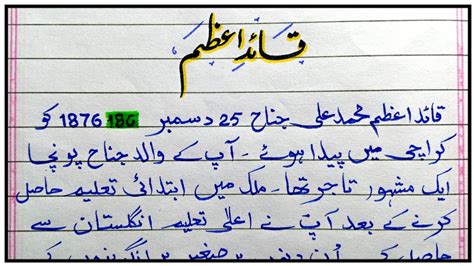 قائد اعظم
قائد اعظم محمد علی جناح 25 دسمبر 186 1876 کو
کراچی میں پیدا ہوئے ۔ آپ کے والد جناح پونجا
ایک مشہور تاجر تھا ۔ ملک میں ابتدائی تعلیم حاصل
کرنے کے بعد آپ نے اعلیٰ تعلیم انگلستان سے